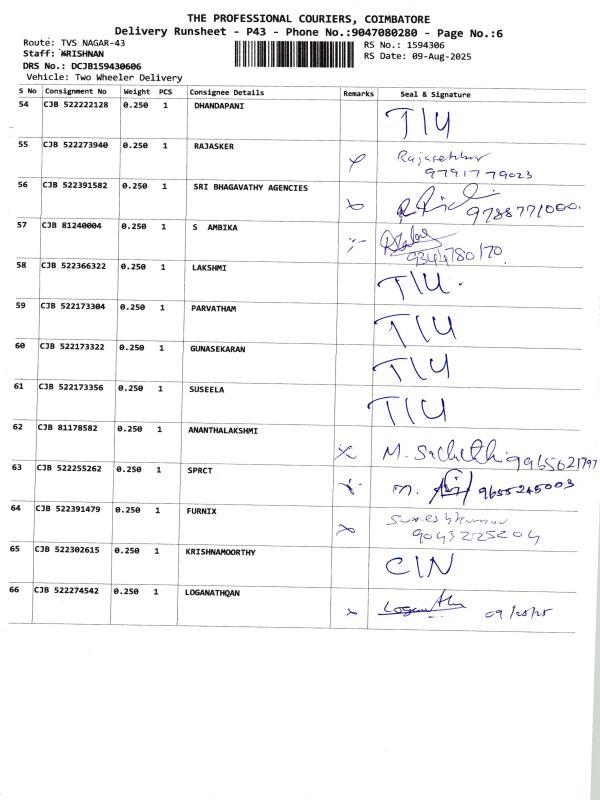 THE PROFESSIONAL COURIERS, COIMBATORE
Delivery Runsheet - P43 - Phone No.:9047080280 - Page No.:6
Route: TVS NAGAR-43
RS No.: 1594306
Staff: KRISHNAN
RS Date: 09-Aug-2025
DRS No.: DCJB159430606
Vehicle: Two Wheeler Delivery
S No Consignment No Weight PCS Consignee Details Remarks Seal & Signature
54 CJB 522222128 0.250 1 DHANDAPANI TIU
55 CJB 522273940 0.250 1 RAJASKER Rajasekhar
9791779023
56 CJB 522391582 0.250 1 SRI BHAGAVATHY AGENCIES 9788771000.
57 CJB 81240004 0.250 1 S AMBIKA
9344780170
58 CJB 522366322 0.250 1 LAKSHMI TIU.
59 CJB 522173304 0.250 1 PARVATHAM TIU
60 CJB 522173322 0.250 1 GUNASEKARAN TIU
61 CJB 522173356 0.250 1 SUSEELA TIU
62 CJB 81178582 0.250 1 ANANTHALAKSHMI M. 9965621797
63 CJB 522255262 0.250 1 SPRCT m. 9655245003
64 CJB 522391479 0.250 1 FURNIX Sureshkumar
9043225204
65 CJB 522302615 0.250 1 KRISHNAMOORTHY CIN
66 CJB 522274542 0.250 1 LOGANATHQAN 09/08/25